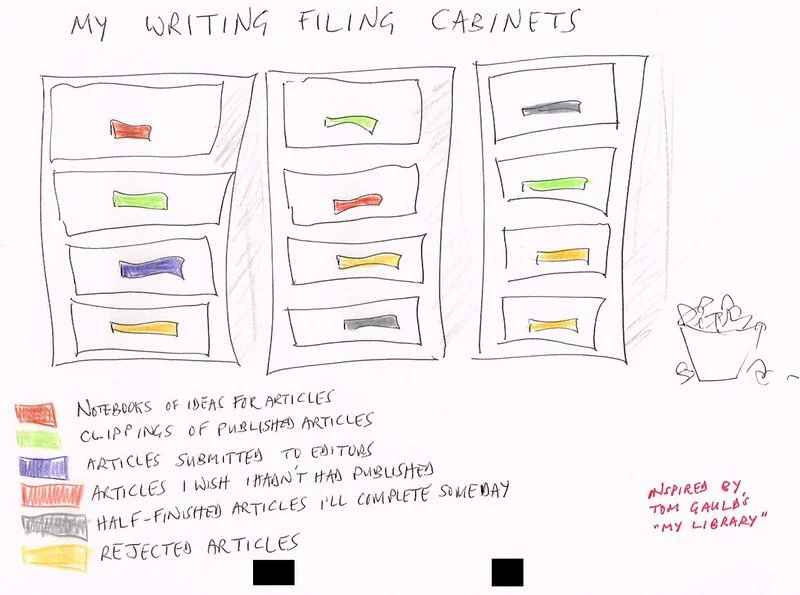 MY WRITING FILING CABINETS
NOTEBOOKS OF IDEAS FOR ARTICLES
CLIPPINGS OF PUBLISHED ARTICLES
ARTICLES SUBMITTED TO EDITORS
ARTICLES I WISH I HADN'T HAD PUBLISHED
HALF-FINISHED ARTICLES I'LL COMPLETE SOMEDAY
REJECTED ARTICLES
INSPIRED BY,
TOM GAULD'S
"MY LIBRARY"